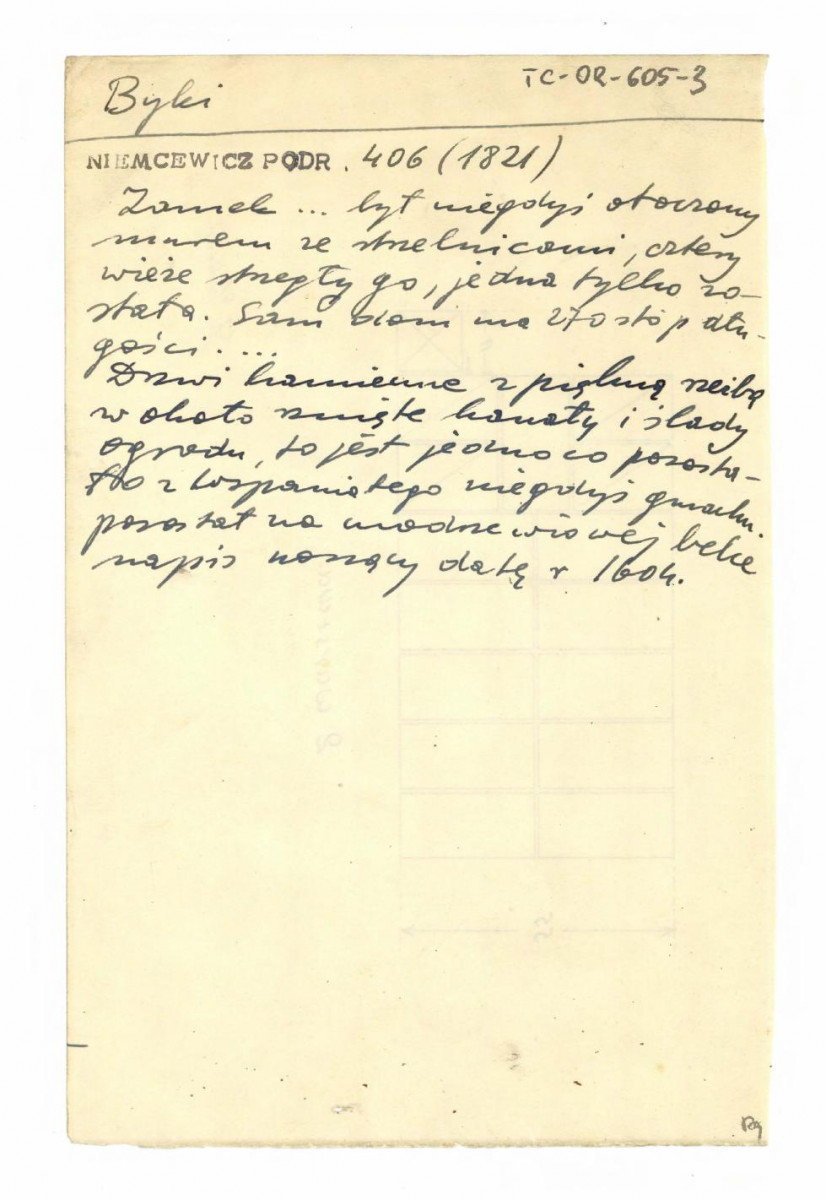 TC-OR-605-3
Byki
NIEMCEWICZ PODR. 406 (1821)
Zamek ... był niegdyś otoczony
murem ze strzelnicami, cztery
wieże strzegły go, jedna tylko zo-
stała. Sam dom ma 270 stóp dłu-
gości. ...
Drzwi kamienne z piękną rzeźbą
w około rznięte kanały i ślady
ogrodu, to jest jedno co pozosta-
ło z wspaniałego niegdyś gmachu.
pozostał na modrzewiowej belce
napis noszący datę r 1604.
55
Rg